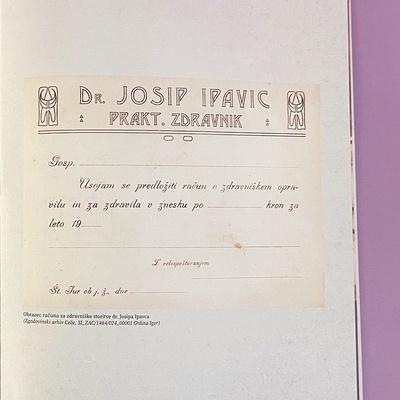 DR. JOSIP IPAVIC
PRAKT. ZDRAVNIK
Gosp.
Usojam se predložiti račun o zdravniškem opra-
vilu in za zdravila v znesku po kron za
leto 19
Z velespoštovanjem
Št. Jur ob j. ž., dne
Obrazec računa za zdravniške storitve dr. Josipa Ipavca
(Zgodovinski arhiv Celje, SI_ZAC/1484/024_00001 Grdina Igor)